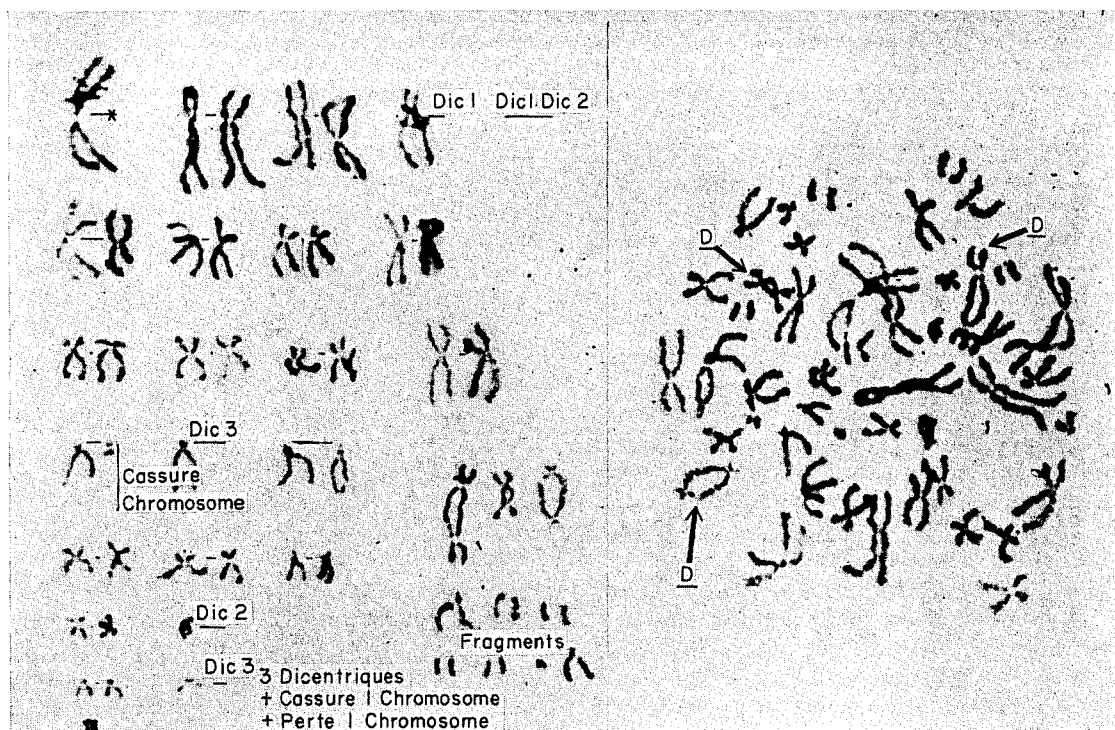 Dic 1 Dic1.Dic 2
D
D
Dic 3
Cassure
Chromosome
D
Dic 2
Fragments
Dic 3
3 Dicentriques
+ Cassure 1 Chromosome
+ Perte 1 Chromosome